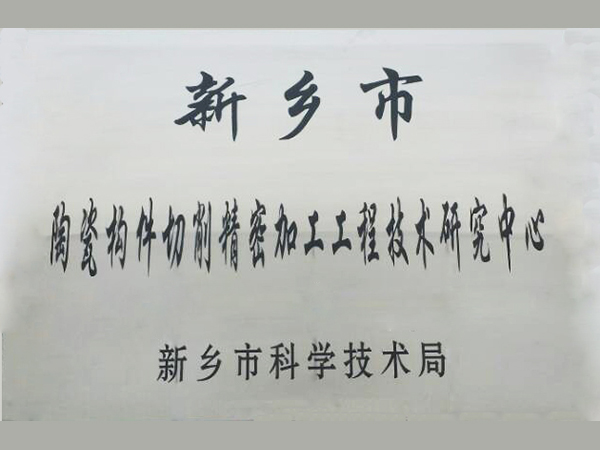 新乡市
陶瓷构件切削精密加工工程技术研究中心
新乡市科学技术局